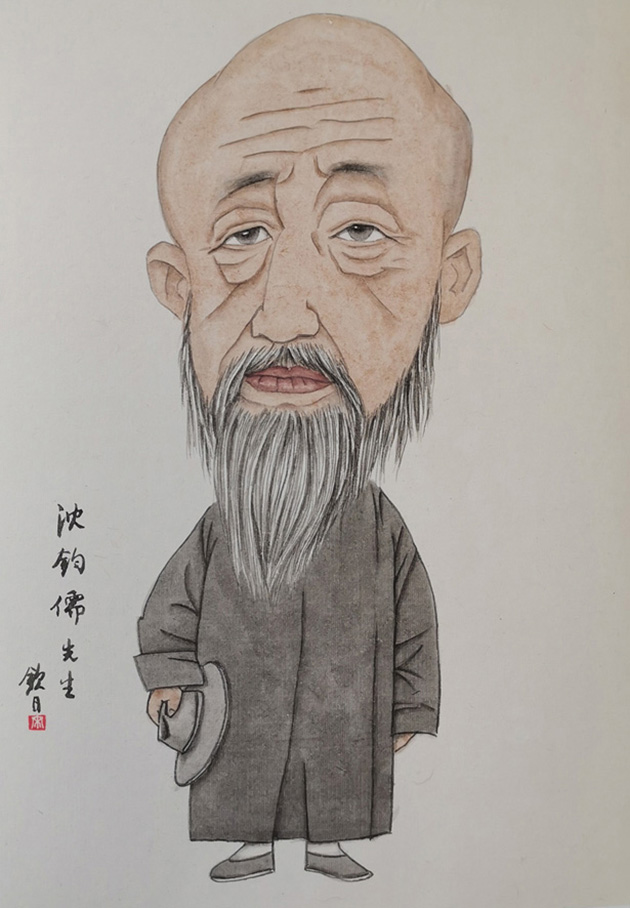 沈钧儒先生
钦日